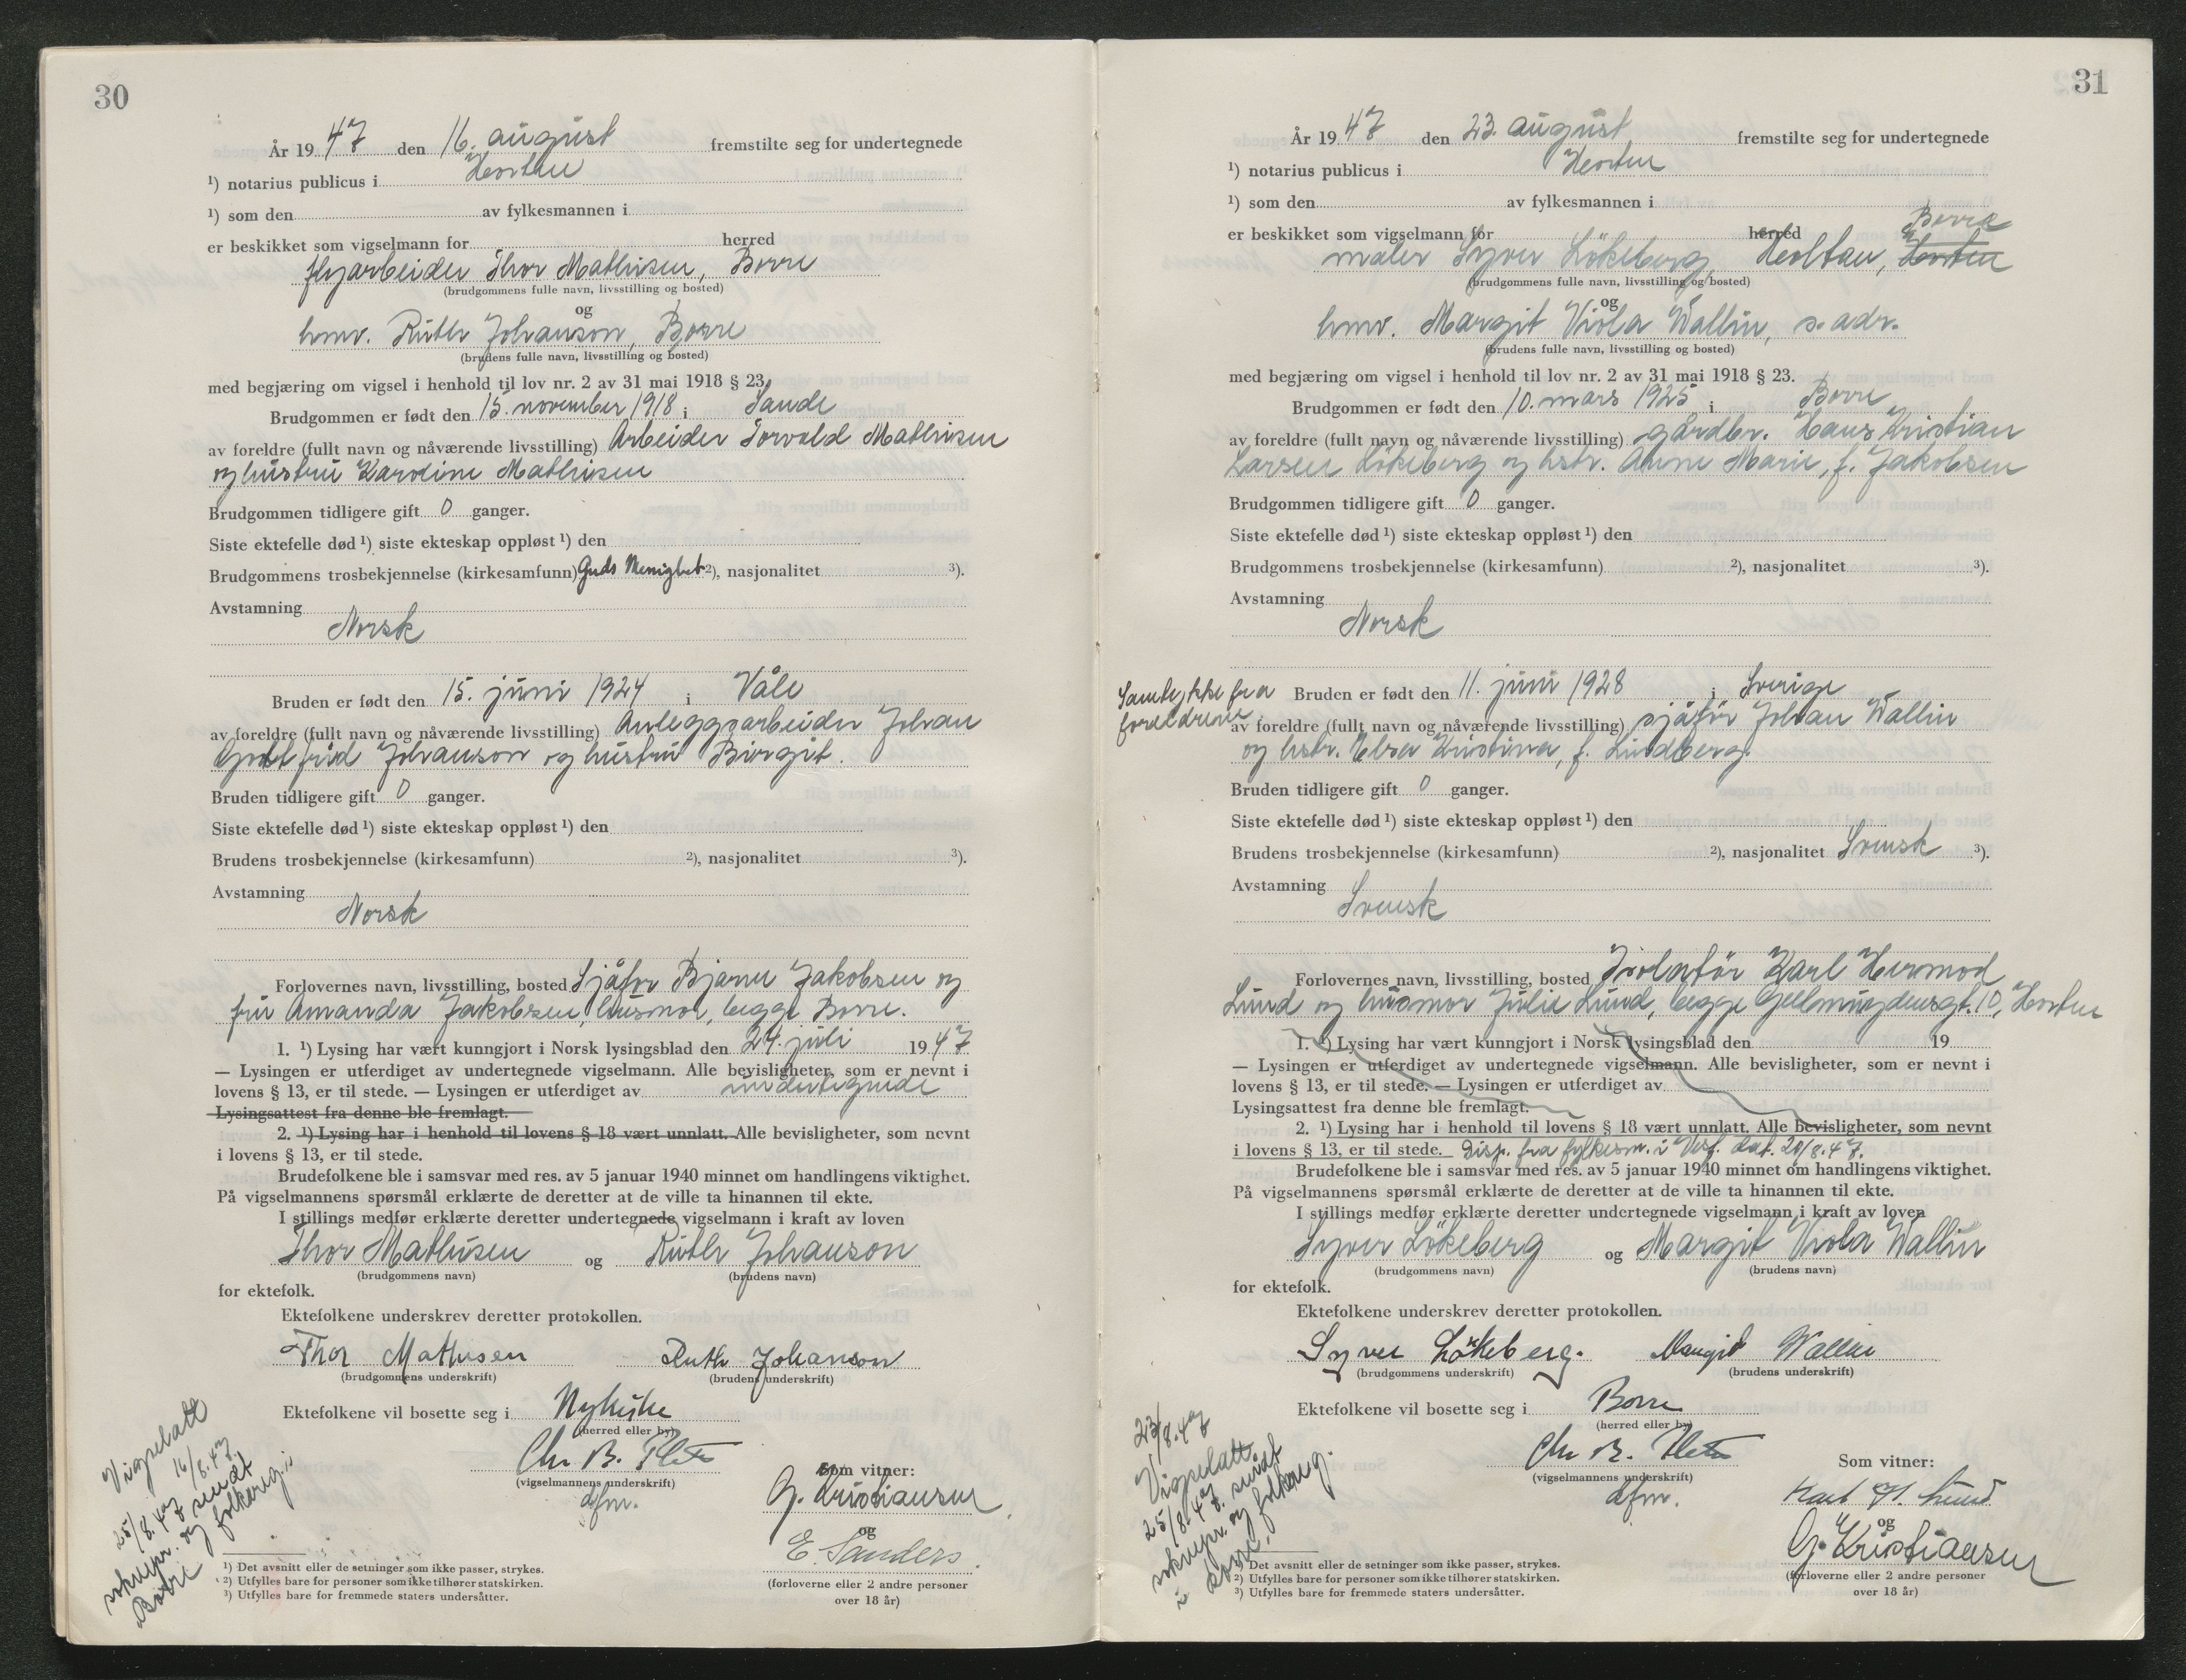 30
År 1947 den 16. august fremstilte seg for undertegnede
¹) notarius publicus i Horten
¹) som den av fylkesmannen i
er beskikket som vigselmann for herred
flyarbeider Thor Mathisen, Borre
(brudgommens fulle navn, livsstilling og bosted)
og
hmv. Ruth Johanson, Borre
(brudens fulle navn, livsstilling og bosted)
med begjæring om vigsel i henhold til lov nr. 2 av 31 mai 1918 § 23.
Brudgommen er født den 15. november 1918 i Sande
av foreldre (fullt navn og nåværende livsstilling) Arbeider Torvald Mathisen
og hustru Karoline Mathisen
Brudgommen tidligere gift 0 ganger.
Siste ektefelle død ¹) siste ekteskap oppløst ¹) den
Brudgommens trosbekjennelse (kirkesamfunn) Guds Menighet ²), nasjonalitet ³).
Avstamning
Norsk
Bruden er født den 15. juni 1924 i Våle
av foreldre (fullt navn og nåværende livsstilling) Anleggsarbeider Johan
Gottfrid Johanson og hustru Birgit.
Bruden tidligere gift 0 ganger.
Siste ektefelle død ¹) siste ekteskap oppløst ¹) den
Brudens trosbekjennelse (kirkesamfunn) ²), nasjonalitet ³).
Avstamning
Norsk
Forlovernes navn, livsstilling, bosted Sjåfør Bjarne Jakobsen og
fru Amanda Jakobsen, husmor, begge Borre.
1. ¹) Lysing har vært kunngjort i Norsk lysingsblad den 24. juli 1947
— Lysingen er utferdiget av undertegnede vigselmann. Alle bevisligheter, som er nevnt i
lovens § 13, er til stede. — Lysingen er utferdiget av undertegnede
Lysingsattest fra denne ble fremlagt.
2. ¹) Lysing har i henhold til lovens § 18 vært unnlatt. Alle bevisligheter, som nevnt
i lovens § 13, er til stede.
Brudefolkene ble i samsvar med res. av 5 januar 1940 minnet om handlingens viktighet.
På vigselmannens spørsmål erklærte de deretter at de ville ta hinannen til ekte.
I stillings medfør erklærte deretter undertegnede vigselmann i kraft av loven
Thor Mathisen og Ruth Johanson
(brudgommens navn) (brudens navn)
for ektefolk.
Ektefolkene underskrev deretter protokollen.
Thor Mathisen Ruth Johanson
(brudgommens underskrift) (brudens underskrift)
Ektefolkene vil bosette seg i Nykirke
(herred eller by)
Chr B.
(vigselmannens underskrift)
dfm.
Som vitner:
G. Kristiansen
og
E. Sanders.
(forloverne eller 2 andre personer
over 18 år)
Vigselatt
16/8.47
25/8.47 sendt
soknepr. og folkereg. i
Borre
¹) Det avsnitt eller de setninger som ikke passer, strykes.
²) Utfylles bare for personer som ikke tilhører statskirken.
³) Utfylles bare for fremmede staters undersåtter.
31
År 1947 den 23. august fremstilte seg for undertegnede
¹) notarius publicus i Horten
¹) som den av fylkesmannen i
er beskikket som vigselmann for herred
Borre
maler Syver Lökeberg, Holtan, Horten
(brudgommens fulle navn, livsstilling og bosted)
og
hmv. Margit Viola Wallin, s. adr.
(brudens fulle navn, livsstilling og bosted)
med begjæring om vigsel i henhold til lov nr. 2 av 31 mai 1918 § 23.
Brudgommen er født den 10. mars 1925 i Borre
av foreldre (fullt navn og nåværende livsstilling) gårdbr. Hans Kristian
Larsen Lökeberg og hstr. Anne Marie, f. Jakobsen
Brudgommen tidligere gift 0 ganger.
Siste ektefelle død ¹) siste ekteskap oppløst ¹) den
Brudgommens trosbekjennelse (kirkesamfunn) ²), nasjonalitet ³).
Avstamning
Norsk
Samtykke fra
foreldrene
Bruden er født den 11. juni 1928 i Sverige
av foreldre (fullt navn og nåværende livsstilling) sjåför Johan Wallin
og hstr. Elsa Kristina, f. Lindberg.
Bruden tidligere gift 0 ganger.
Siste ektefelle død ¹) siste ekteskap oppløst ¹) den
Brudens trosbekjennelse (kirkesamfunn) ²), nasjonalitet Svensk ³).
Avstamning
Svensk
Forlovernes navn, livsstilling, bosted Isolatör Karl Hermod
Lund og husmor Julie Lund, begge Gyllnúgdensgt. 10, Horten
1. ¹) Lysing har vært kunngjort i Norsk lysingsblad den 19
— Lysingen er utferdiget av undertegnede vigselmann. Alle bevisligheter, som er nevnt i
lovens § 13, er til stede. — Lysingen er utferdiget av
Lysingsattest fra denne ble fremlagt.
2. ¹) Lysing har i henhold til lovens § 18 vært unnlatt. Alle bevisligheter, som nevnt
i lovens § 13, er til stede. Disp. fra fylkesm. i Vestf. dat. 20/8.47.
Brudefolkene ble i samsvar med res. av 5 januar 1940 minnet om handlingens viktighet.
På vigselmannens spørsmål erklærte de deretter at de ville ta hinannen til ekte.
I stillings medfør erklærte deretter undertegnede vigselmann i kraft av loven
Syver Lökeberg og Margit Viola Wallin
(brudgommens navn) (brudens navn)
for ektefolk.
Ektefolkene underskrev deretter protokollen.
Syver Lökeberg. Margit Wallin
(brudgommens underskrift) (brudens underskrift)
Ektefolkene vil bosette seg i Borre
(herred eller by)
Chr B.
(vigselmannens underskrift)
dfm.
Som vitner:
Karl H. Lund
og
G. Kristiansen
(forloverne eller 2 andre personer
over 18 år)
23/8.47
Vigselatt.
25/8.47. sendt
soknepr. og folkereg.
i Borre.
¹) Det avsnitt eller de setninger som ikke passer, strykes.
²) Utfylles bare for personer som ikke tilhører statskirken.
³) Utfylles bare for fremmede staters undersåtter.